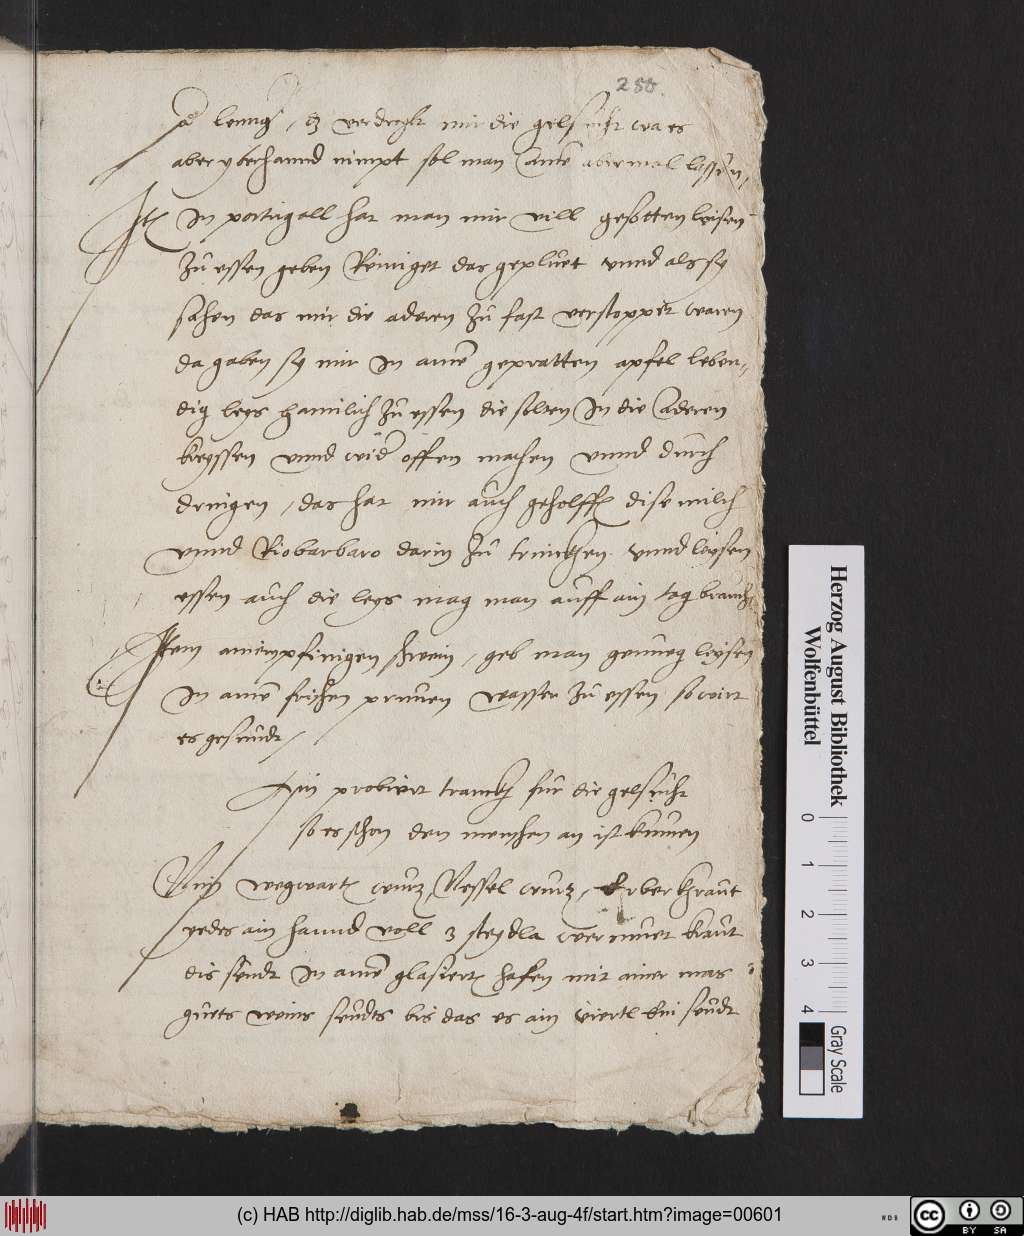 280.
lenng, dz verdreibt mir die gelsucht wa es
aber yberhannd nimpt sol man ainē abermal lassen,
Itē In portugall hat man mir vill gesotten leisen
zu essen geben Reiniget das gepluet vnnd als sy
sahen das mir die aderen zu fast verstoppet waren
da gaben sy mir In ainē gepratten apfel leben-
dig leys haimlich zu essen die solten In die Aderen
kreyssen vnnd wid offen machen vnnd durch
dringen, das hat mir auch geholffē dise milch
vnnd Riobarbaro darin zu trinckhen vnnd leysen
essen auch die leys mag man auff ain tag brauchē
Item ainempfinigen schwein, geb man genueg leysen
In ainē frischen prunen wasser zu essen so wirt
es gesundt
Ain probiert tranckh für die gelsucht
so es schon den menschen an ist kumen
Nim wegwartē wurz, Nessel wurz, Erberkhraut
yedes ain hannd voll 3 steydla wermuet kraut
dis seudt In ainē glasiertē hafen mit ainer mas
guets weins seudts bis das es ain viertl ein seudt
Herzog August Bibliothek
Wolfenbüttel
0 1 2 3 4
Gray Scale
(c) HAB http://diglib.hab.de/mss/16-3-aug-4f/start.htm?image=00601
WDB
cc BY SA